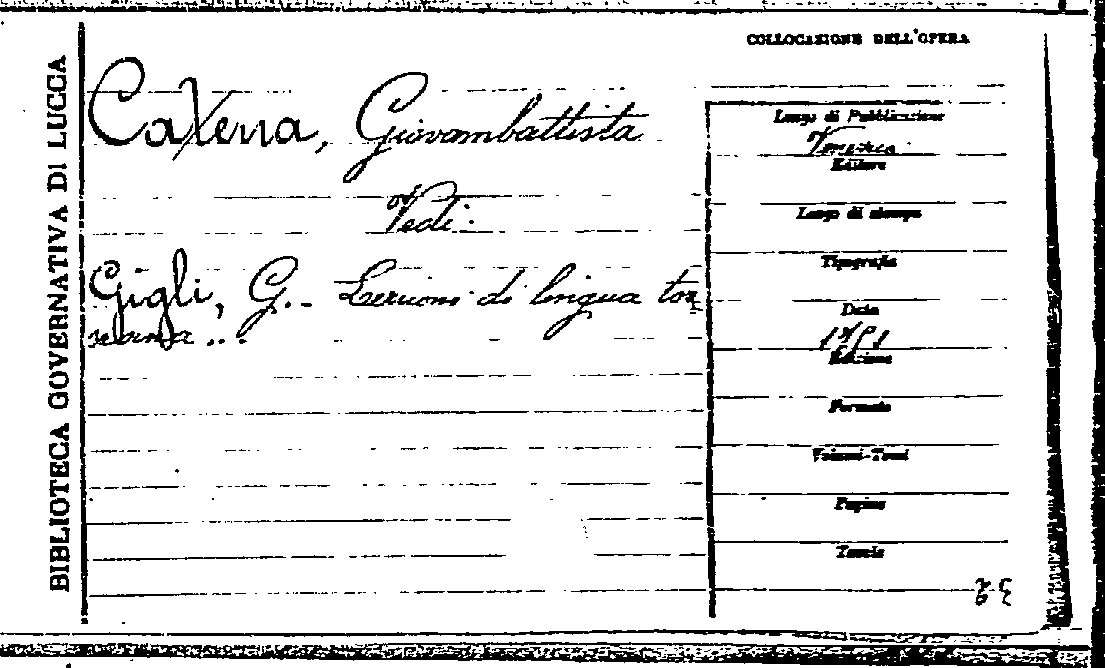 BIBLIOTECA GOVERNATIVA DI LUCCA
COLLOCAZIONE DELL'OPERA
Catena, Giovambattista
Vedi:
Gigli, G.- Lezioni di lingua tos
scana...
Luogo di Pubblicazione
Venezia
Editore
Luogo di stampa
Tipografia
Data
Edizione
Formato
Volumi-Tomi
Pagine
Tavole